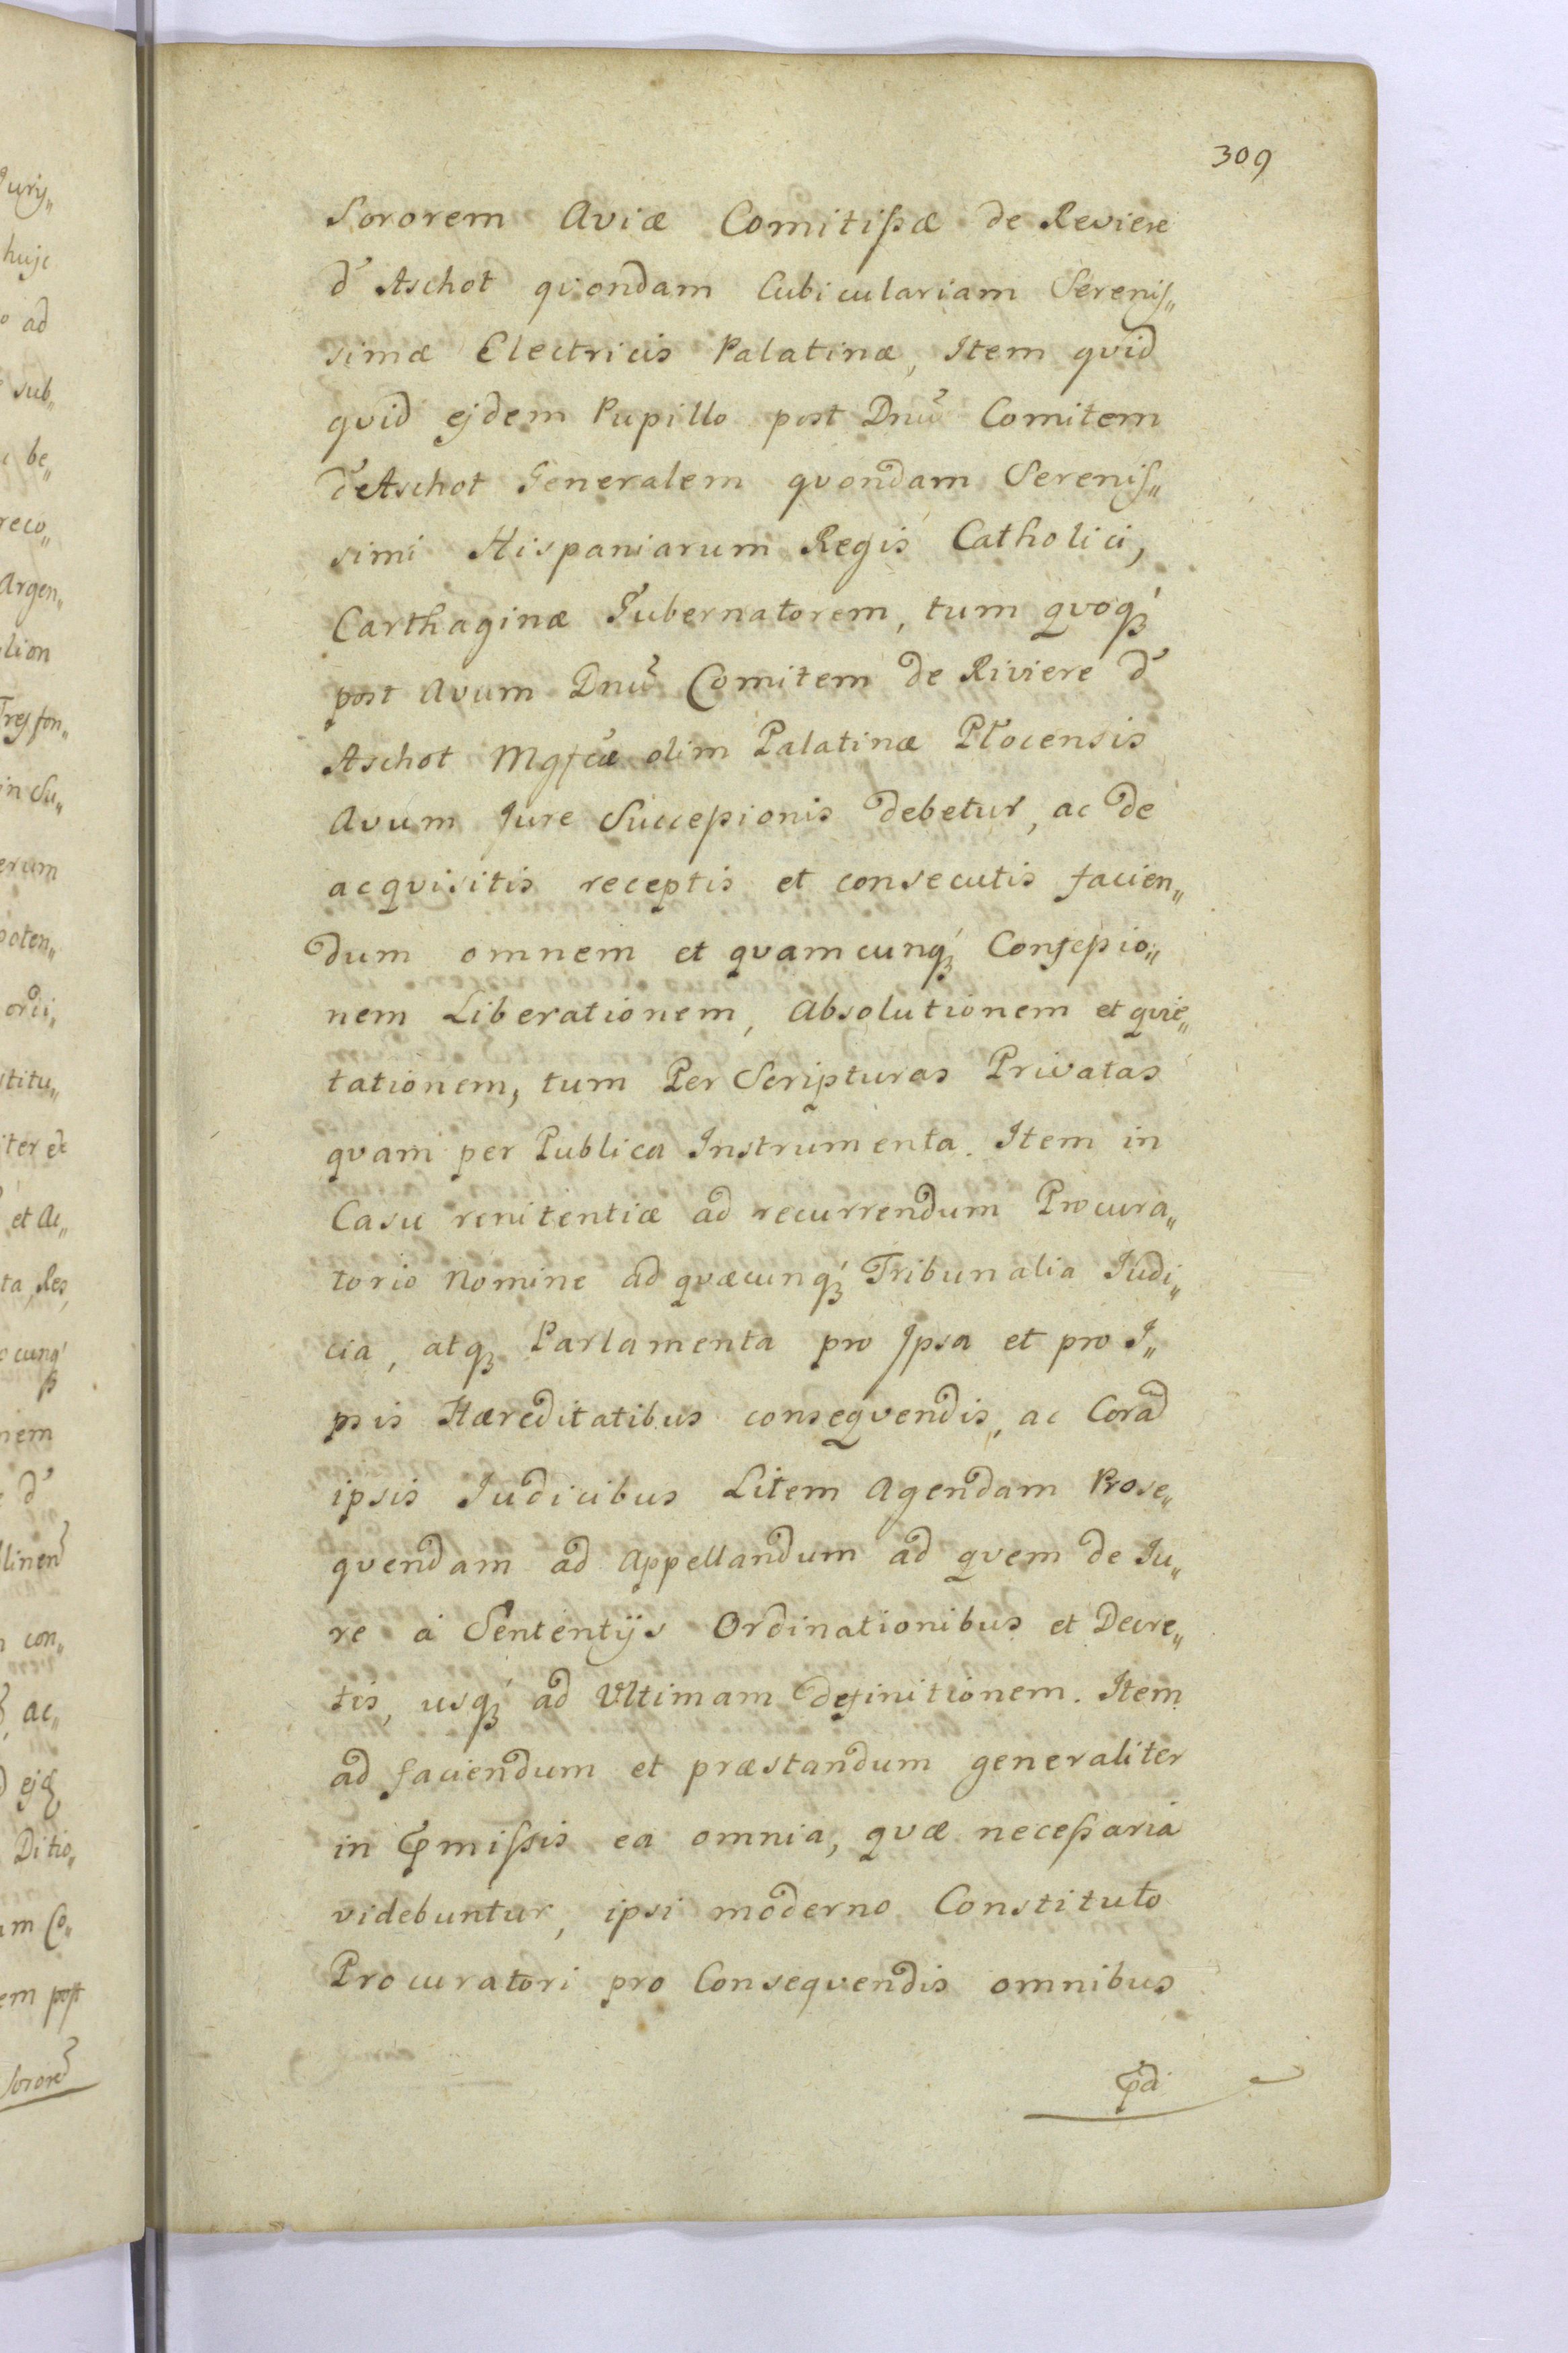 309
Sororem Aviæ Comitißæ de Reviere
d' Aschot qvondam Cubiculariam Serenis„
simæ Electricis Palatinæ, Item qvid
qvid ejdem Pupillo post Dnũ Comitem
d'Aschot Generalem qvondam Serenis„
simi Hispaniarum Regis Catholici,
Carthaginæ Gubernatorem, tum qvoq́
post Avum Dnũ Comitem de Riviere d'
Aschot Mgfcæ olim Palatinæ Płocensis
Avum Jure Succeßionis debetur, ac de
acqvisitis receptis et consecutis facien„
dum omnem et qvamcunq́ Conseßio„
nem Liberationem, Absolutionem et qvie„
tationem, tum Per Scripturas Privatas
qvam per Publica Instrumenta. Item in
Casu renitentiæ ad recurrendum Procura„
torio Nomine ad qvæcunq́ Tribunalia Judi„
cia, atq Parlamenta pro Ipsa et pro I„
psis Hæreditatibus conseqvendis, ac Corad
ipsis Judicibus Litem Agendam Prose„
qvendam ad Appellandum ad qvem de Iu„
re à Sententijs Ordinationibus et Decre„
tis, usq́ ad Ultimam definitionem. Item
ad faciendum et præstandum generaliter
in Pmißis ea omnia, qvæ neceßaria
videbuntur, ipsi moderno Constituto
Procuratori pro Conseqvendis omnibus
Pdi
Jury„
hujc
ad
sub„
be„
reco„
Argen„
lion
in Su„
erum
poten„
ordi„
stitu„
iter et
et Ac„
ta, Res,
cunq́
nem
d'
con„
ac„
Ditio„
um Co„
em post
Sororẽ